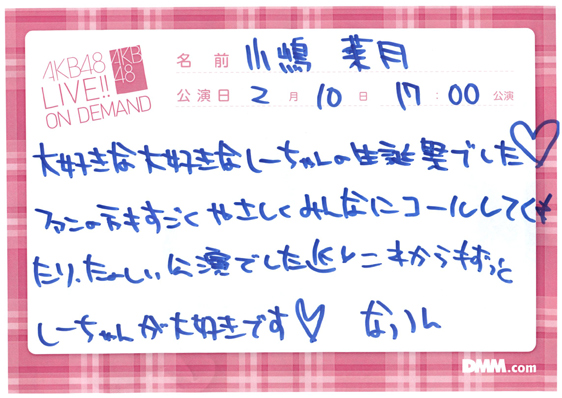 AKB48
LIVE!!
ON DEMAND
AKB
48
名前 小嶋菜月
公演日 2月10日 17:00公演
大好きな大好きなしーちゃんの生誕祭でした♡
ファンの方もすごくやさしくみんなにコールしてくれ
たり、たのしい公演でした これからもずっと
しーちゃんが大好きです♡ なっつん
DMM.com